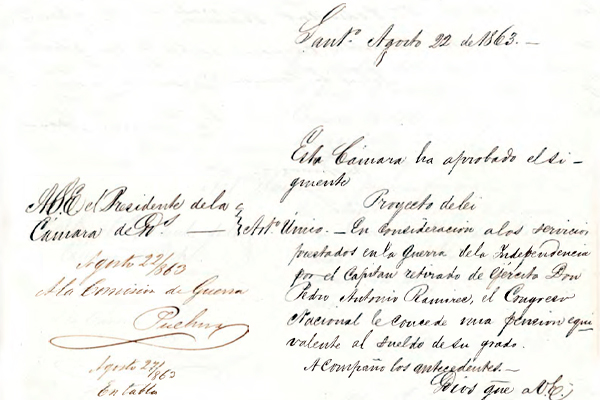 Sant.º Agosto 22 de 1863.—
Esta Cámara ha aprobado el si-
guiente
Proyecto de lei
Art.º Único.— En consideración a los servicios
prestados en la Guerra de la Independencia
por el Capitan retirado de Ejército Don
Pedro Antonio Ramirez, el Congreso
Nacional le concede una pension equi-
valente al sueldo de su grado.
Acompaño los antecedentes.—
Dios gue a V.E.
A S.E. el Presidente de la
Cámara de D.s
Agosto 22/863
A la Comision de Guerra
Agosto 27/863
En tabla